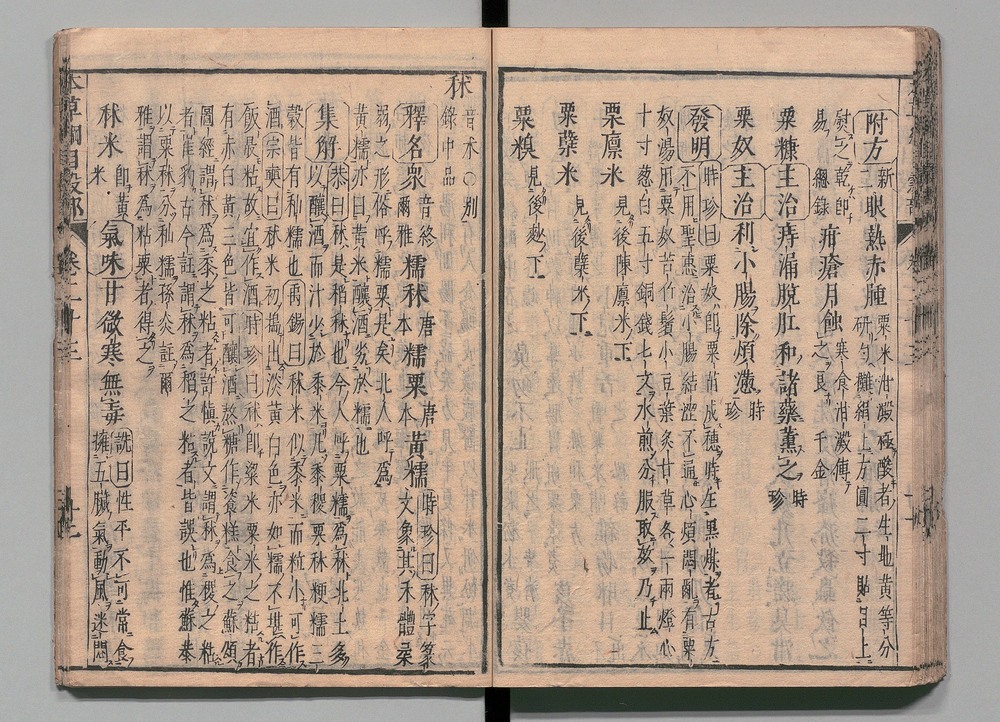 附方 新二 眼熱赤腫 粟米泔澱極酸者生地黃等分研勻攤絹上方圓二寸貼目上
熨之乾即易總錄 疳瘡月蝕 寒食泔澱傅之良千金
粟糠 主治 痔漏脫肛和諸藥薰之 時珍
粟奴 主治 利小腸除煩懣 時珍
發明 時珍曰粟奴即粟苗成穗時生黑煤者古方
不用聖惠治小腸結澀不通心煩悶亂有粟
奴湯用粟奴苦竹鬚小豆葉炙甘草各一兩燈心
十寸葱白五寸銅錢七文水煎分服取效乃止
粟廩米 見後陳廩米下
粟蘗米 見後蘗米下
粟糗 見後麨下
秫 音朮○別錄中品
釋名 眾 音終爾雅 糯秫 唐本 糯粟 唐本 黃糯 時珍曰秫字篆文象其禾體柔
弱之形俗呼糯粟是矣北人呼為
黃糯亦曰黃米釀酒劣於糯也
集解 恭曰秫是稻秫也今人呼粟糯為秫北土多
以釀酒而汁少於黍米凡黍稷粟秫粳糯三
穀皆有秈糯也禹錫曰秫米似黍米而粒小可作
酒宗奭曰秫米初搗出淡黃白色亦如糯不堪作
飯最粘故宜作酒時珍曰秫即粱米粟米之粘者
有赤白黃三色皆可釀酒熬糖作餈糕食之蘇頌
圖經謂秫為黍之粘者許慎說文謂秫為稷之粘
者崔豹古今註謂秫為稻之粘者皆誤也惟蘇恭
以粟秫分秈糯孫炎註爾
雅謂秫為粘粟者得之
秫米 即黃米 氣味 甘微寒無毒 詵曰性平不可常食擁五臟氣動風迷悶
本草綱目穀部 卷二十三